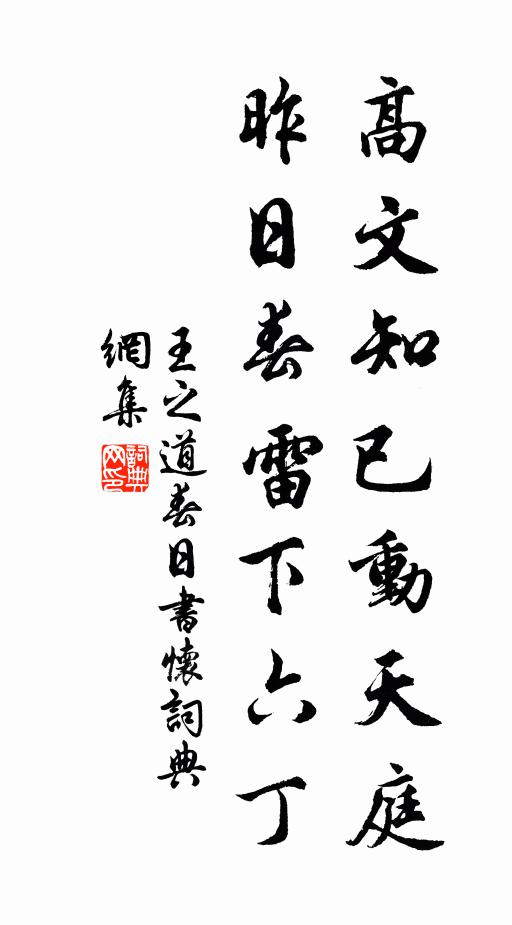 高文知已動天庭
昨日春雷下六丁
王之道春日書懷詞典
網集
詞典網印